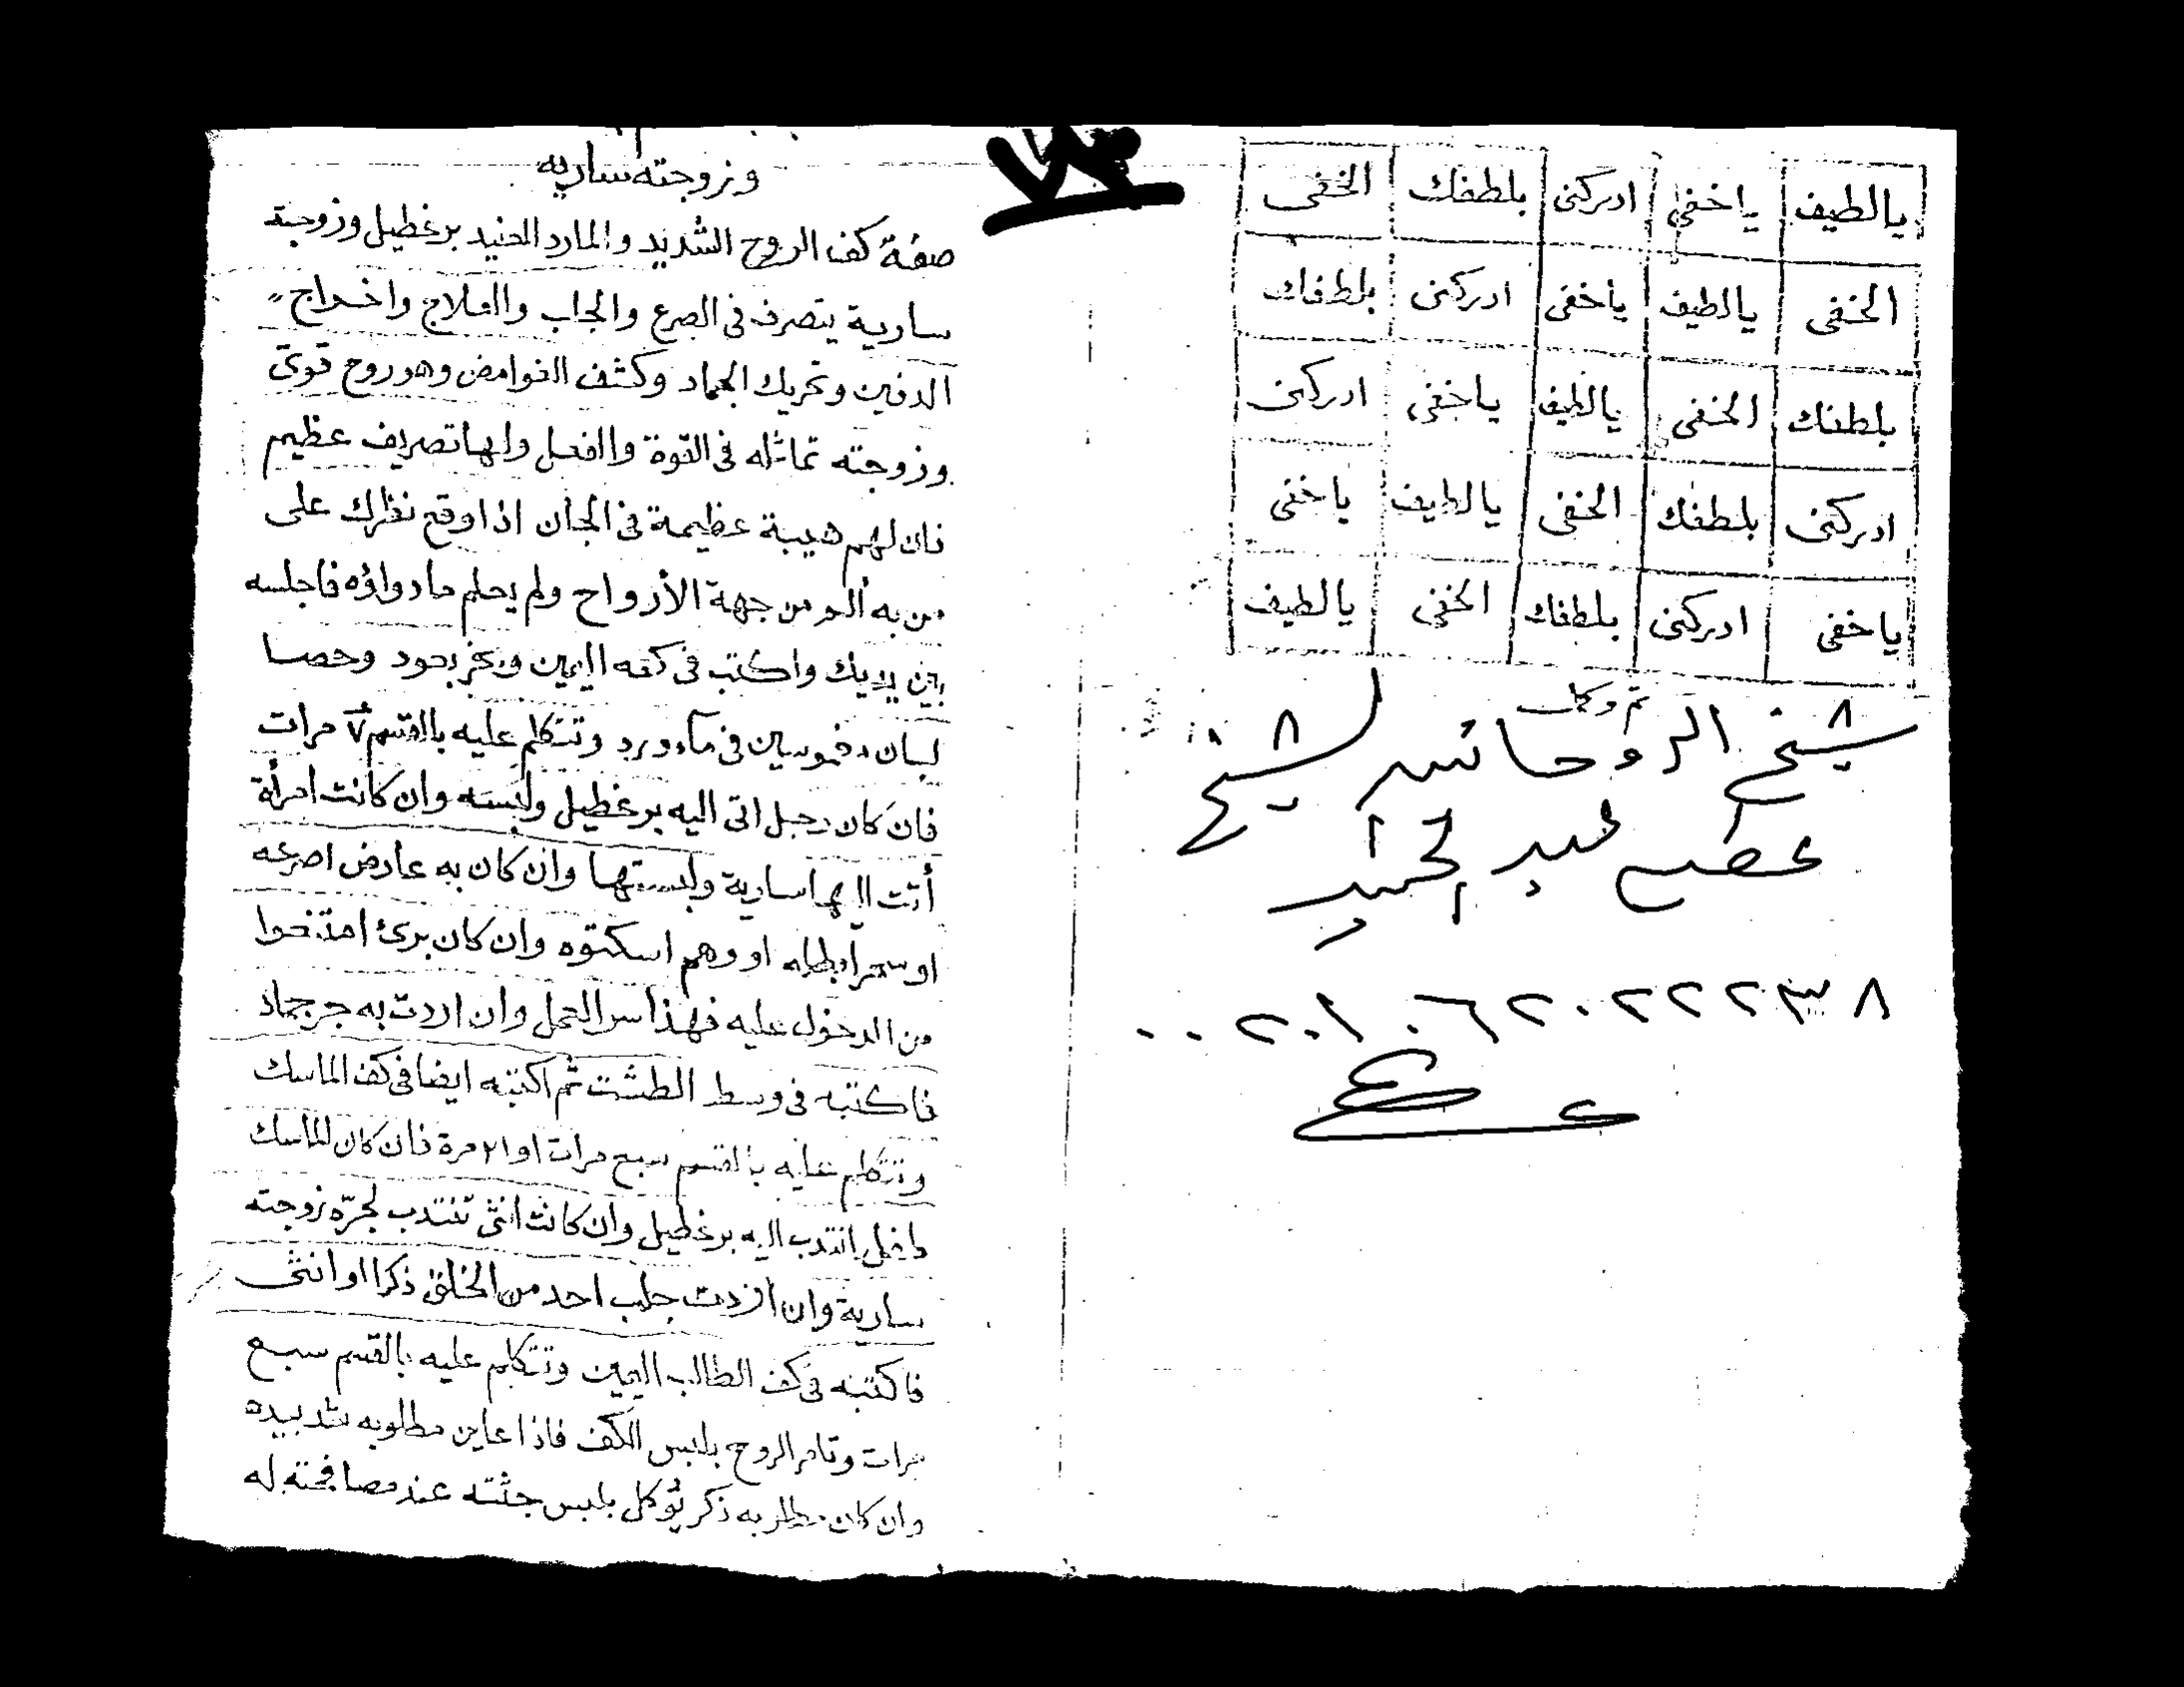 يالطيف ياخفي ادركنى بلطفك الخفى
الخفى يالطيف ياخفى ادركنى بلطفك
بلطفك الخفى يالطيف ياخفى ادركنى
ادركنى بلطفك الخفى يالطيف ياخفى
ياخفى ادركنى بلطفك الخفى يالطيف
شيخ الروحانين الشيخ
عبد الحميد
٠٠٢٠١٠٦٢٠٢٢٢٣٨
وزوجته ساريه
صفة كف الروح الشديد والمارد العنيد برغطيل وزوجته
سارية يتصرف فى الصرع والجلب والعلاج واخراج
الدفين وتحريك الجماد وكشف الغوامض وهو روح قوى
وزوجته تماثله فى القوة والفعل ولها تصريف عظيم
فان لهم هيبة عظيمة فى الجان اذا وقع نظرك على
من به ألم من جهة الأرواح ولم يعلم ما دواؤه فاجلسه
بين يديك واكتب فى كفه اليمين وبخر بعود وحصا
لبان مغموسين فى ماء ورد وتتكلم عليه بالقسم ٧ مرات
فان كان رجل اتى اليه برغطيل ولبسه وان كانت امرأة
أتت اليها سارية ولبستها وان كان به عارض اصرعه
او سحر ابطله او وهم اسكتوه وان كان برئ امتنعوا
من الدخول عليه فهذا سر العمل وان اردت به جر جماد
فاكتبه فى وسط الطشت ثم اكتبه ايضا فى كف الماسك
وتتكلم عليه بالقسم سبع مرات او ٢١ مرة فان كان الماسك
طفل انتدب اليه برغطيل وان كانت انثى تنتدب لجره زوجته
سارية وان اردت جلب احد من الخلق ذكرا او انثى
فاكتبه فى كف الطالب اليمين وتتكلم عليه بالقسم سبع
مرات وتامر الروح بلبس الكف فاذا عاين مطلوبه شد بيده
وان كان مطلوبه ذكر يوكل بلبس جثته عند مصافحته له